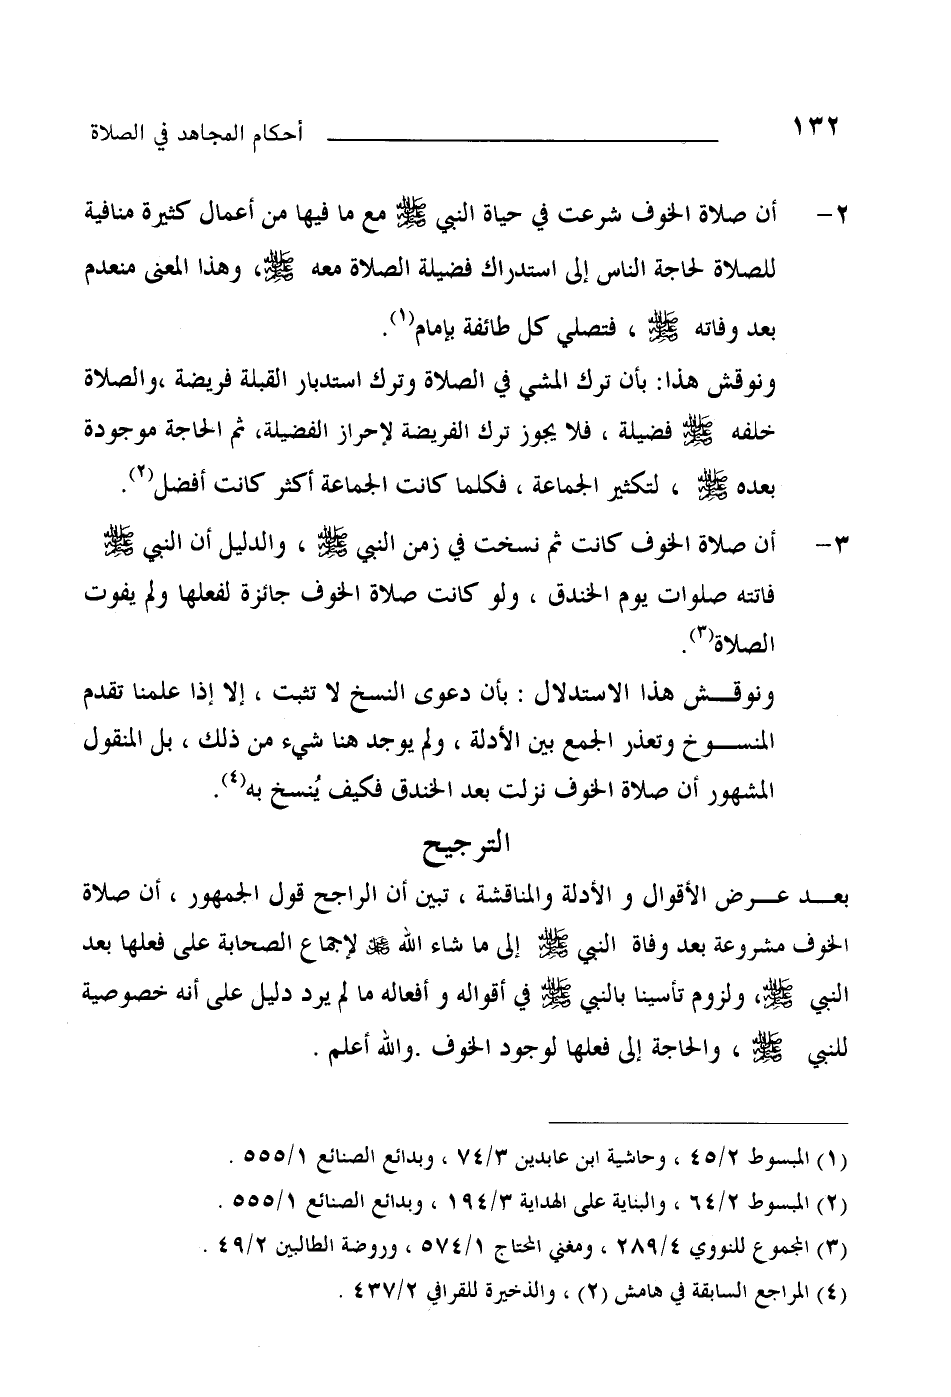 ١٣٢ أحكام المجاهد في الصلاة
٢- أن صلاة الخوف شرعت في حياة النبي ﷺ مع ما فيها من أعمال كثيرة منافية
للصلاة لحاجة الناس إلى استدراك فضيلة الصلاة معه ﷺ، وهذا المعنى منعدم
بعد وفاته ﷺ ، فتصلي كل طائفة بإمام(١).
ونوقش هذا: بأن ترك المشي في الصلاة وترك استدبار القبلة فريضة ،والصلاة
خلفه ﷺ فضيلة ، فلا يجوز ترك الفريضة لإحراز الفضيلة، ثم الحاجة موجودة
بعده ﷺ ، لتكثير الجماعة ، فكلما كانت الجماعة أكثر كانت أفضل(٢).
٣- أن صلاة الخوف كانت ثم نسخت في زمن النبي ﷺ ، والدليل أن النبي ﷺ
فاتته صلوات يوم الخندق ، ولو كانت صلاة الخوف جائزة لفعلها ولم يفوت
الصلاة(٣).
ونوقش هذا الاستدلال : بأن دعوى النسخ لا تثبت ، إلا إذا علمنا تقدم
المنسوخ وتعذر الجمع بين الأدلة ، ولم يوجد هنا شيء من ذلك ، بل المنقول
المشهور أن صلاة الخوف نزلت بعد الخندق فكيف يُنسخ به(٤).
الترجيح
بعد عرض الأقوال و الأدلة والمناقشة ، تبين أن الراجح قول الجمهور ، أن صلاة
الخوف مشروعة بعد وفاة النبي ﷺ إلى ما شاء الله ﷻ لإجماع الصحابة على فعلها بعد
النبي ﷺ، ولزوم تأسينا بالنبي ﷺ في أقواله و أفعاله ما لم يرد دليل على أنه خصوصية
للنبي ﷺ ، والحاجة إلى فعلها لوجود الخوف .والله أعلم .
(١) المبسوط ٤٥/٢ ، وحاشية ابن عابدين ٧٤/٣ ، وبدائع الصنائع ٥٥٥/١ .
(٢) المبسوط ٦٤/٢ ، والبناية على الهداية ١٩٤/٣ ، وبدائع الصنائع ٥٥٥/١ .
(٣) المجموع للنووي ٢٨٩/٤ ، ومغني المحتاج ٥٧٤/١ ، وروضة الطالبين ٤٩/٢ .
(٤) المراجع السابقة في هامش (٢) ، والذخيرة للقرافي ٤٣٧/٢ .